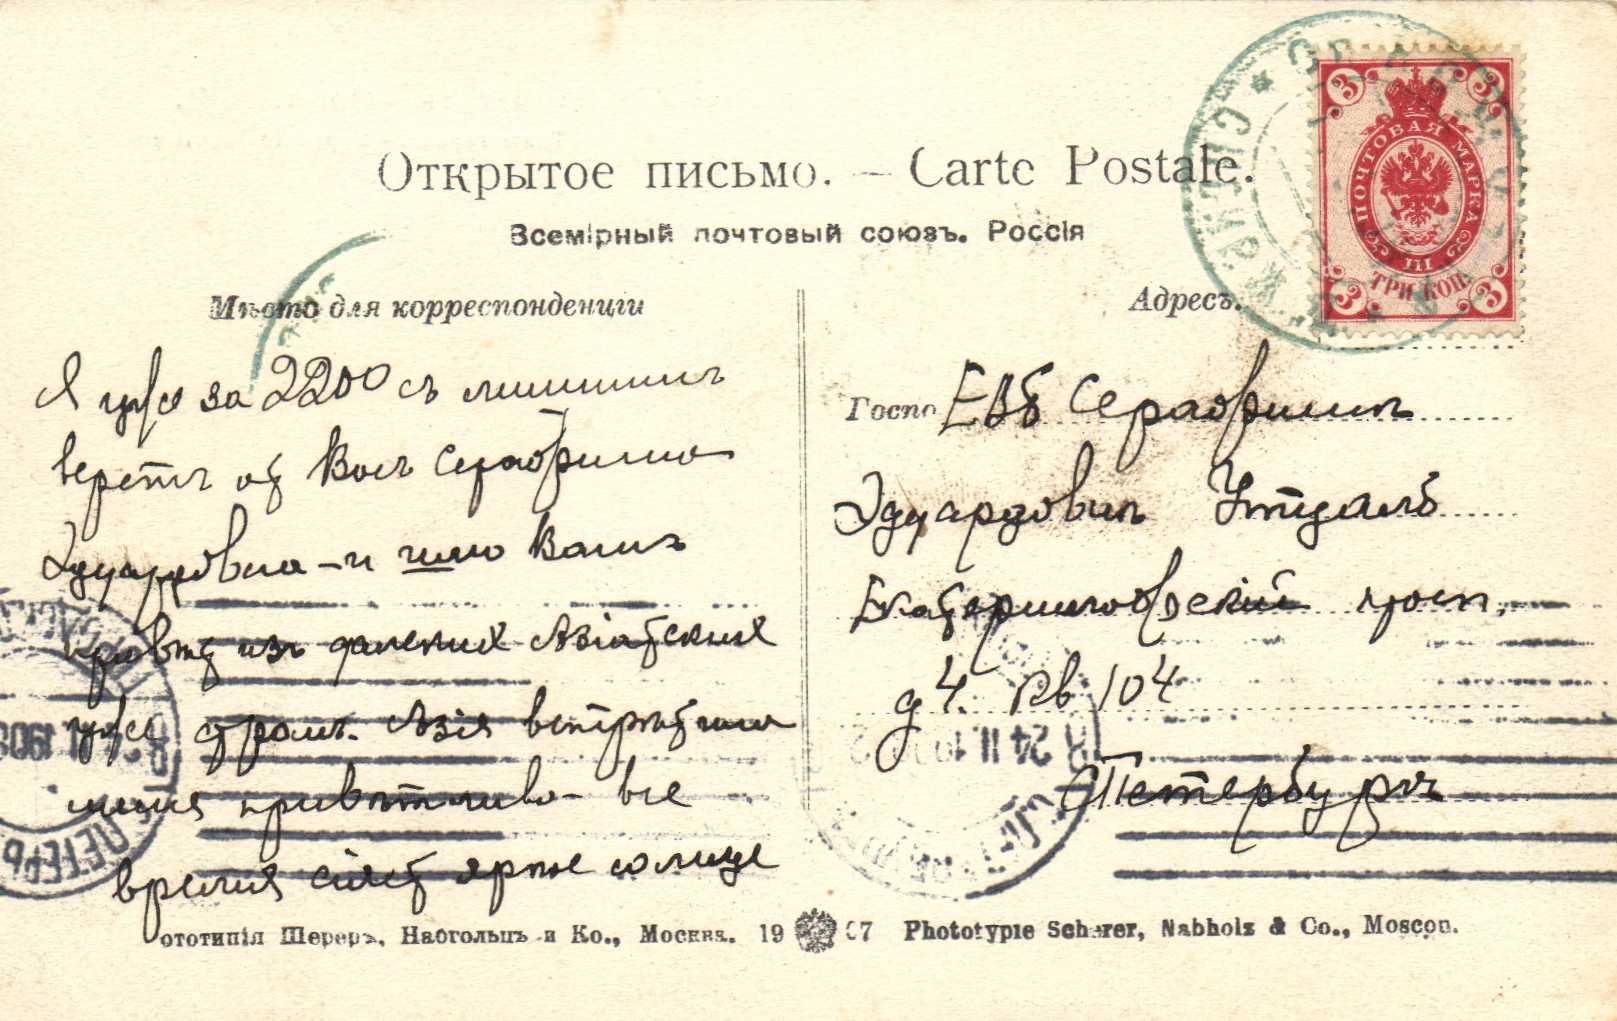 Открытое письмо. — Carte Postale.
Всемірный почтовый союзъ. Россія
Мѣсто для корреспонденціи
Адресъ.
ПОЧТОВАЯ МАРКА
3 3
III
ТРИ КОП.
3 3
Я уже за 2200 съ лишнимъ
верстъ отъ Васъ Серафима
Эдуардовна - и шлю Вамъ
привѣтъ изъ далекихъ Азіатскихъ
уже странъ. Азія встрѣтила
меня привѣтливо - все
время сіяетъ яркое солнце
Госпо ЕВБ Серафимѣ
Эдуардовнѣ
Екатерингофскій просп.
д 4. кв 104
СПетербургъ
24 II
ототипія Шереръ, Набгольцъ и Ко., Москва. 19 07 Phototypie Scherer, Nabholz & Co., Moscou.